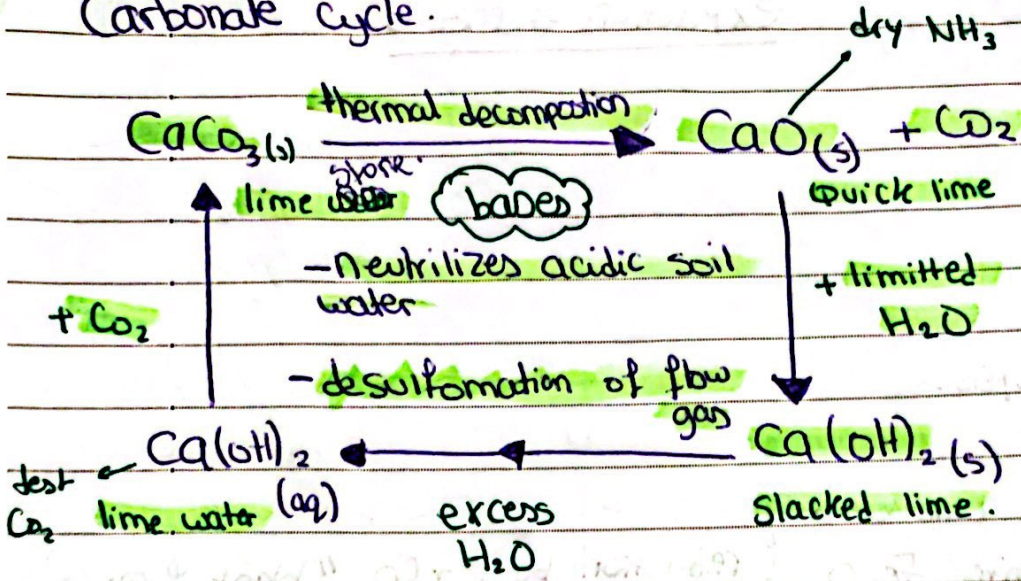 Carbonate Cycle.
dry NH3
CaCO3 (s) thermal decompostion CaO(s) + CO2
lime stone
Quick lime
bases
-neutrilizes acidic soil
water
+ limitted
H2O
+ CO2
-desulfomation of flow
gas
Ca(OH)2 (aq)
Ca(OH)2 (s)
test
CO2
lime water
excess
H2O
Slacked lime.